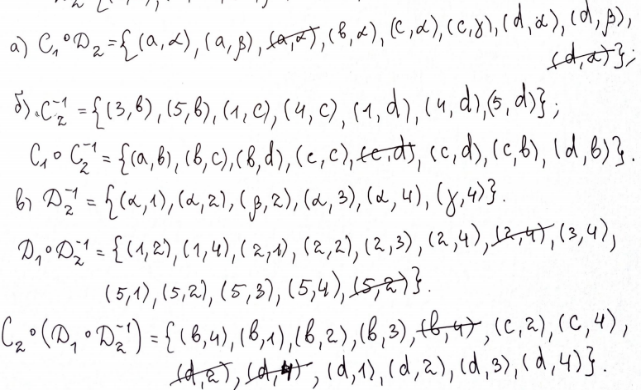 а) C₁∘D₂={(a,α),(a,β),(a,α),(b,α),(c,α),(c,γ),(d,α),(d,β),
(d,α)};
б) C₂⁻¹={(3,b),(5,b),(1,c),(4,c),(1,d),(4,d),(5,d)};
C₁∘C₂⁻¹={(a,b),(b,c),(b,d),(c,c),(c,d),(c,d),(c,b),(d,b)}.
в) D₂⁻¹={(α,1),(α,2),(β,2),(α,3),(α,4),(γ,4)}.
D₁∘D₂⁻¹={(1,2),(1,4),(2,1),(2,2),(2,3),(2,4),(2,4),(3,4),
(5,1),(5,2),(5,3),(5,4),(5,2)}.
C₂∘(D₁∘D₂⁻¹)={(b,4),(b,1),(b,2),(b,3),(b,4),(c,2),(c,4),
(d,2),(d,4),(d,1),(d,2),(d,3),(d,4)}.